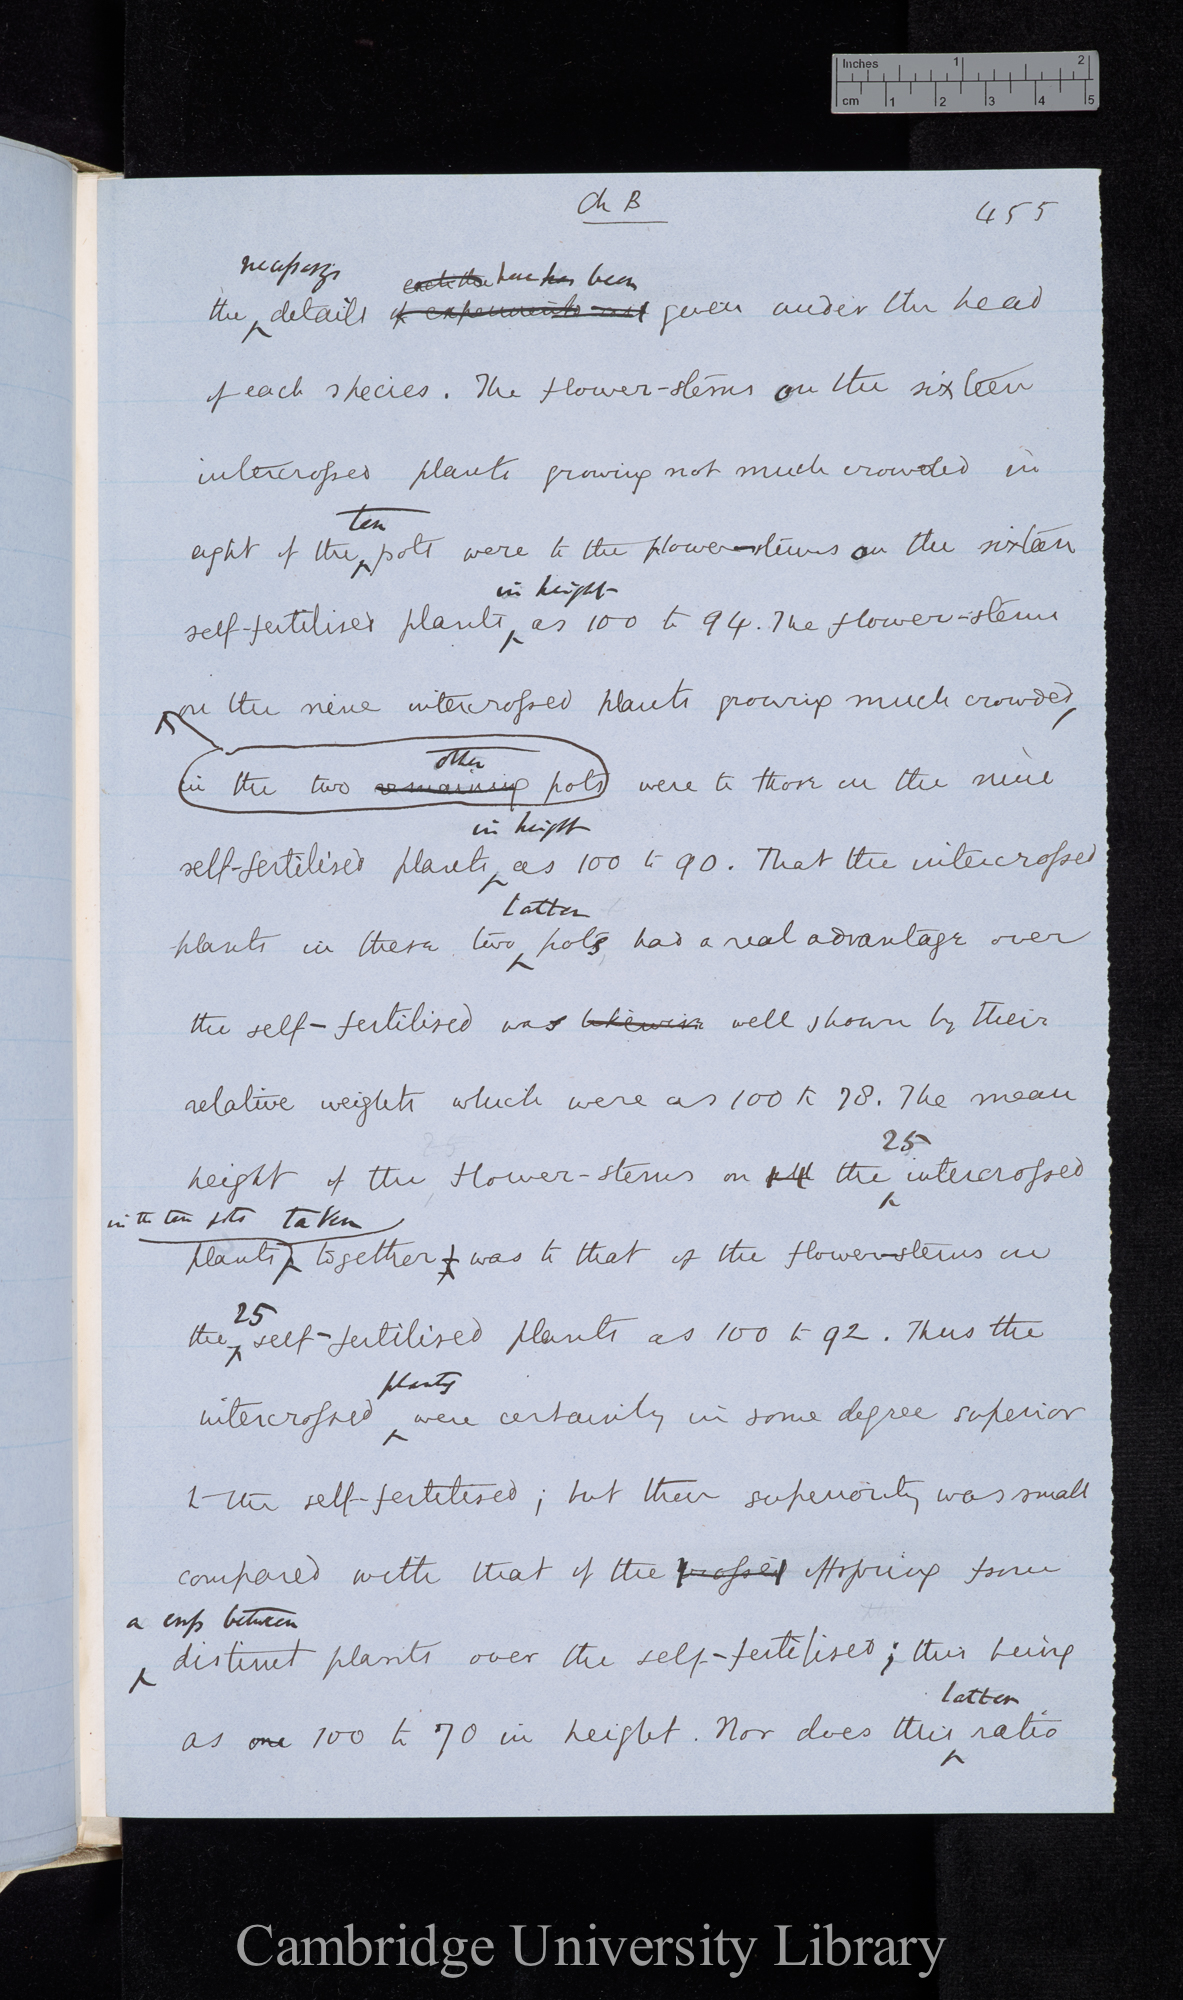 Inches 1 2
cm 1 2 3 4 5
Ch B
455
necessary
have has been
the details of experiments and given under the head
of each species. The flower-stems on the sixteen
intercrossed plants growing not much crowded in
ten
eight of the pots were to the flower-stems on the sixteen
in height
self-fertilised plants as 100 to 94. The flower-stems
on the nine intercrossed plants growing much crowded,
other
in the two remaining pots were to those on the nine
in height
self-fertilised plants as 100 to 90. That the intercrossed
latter
plants in these two pots had a real advantage over
the self-fertilised was likewise well shown by their
relative weights which were as 100 to 78. The mean
25
height of the flower-stems on all the intercrossed
in the ten pots taken
plants, together, was to that of the flower-stems on
25
the self-fertilised plants as 100 to 92. Thus the
plants
intercrossed were certainly in some degree superior
to the self-fertilised; but their superiority was small
compared with that of the crossed offspring from
a cross between
distinct plants over the self-fertilised; this being
latter
as one 100 to 70 in height. Nor does this ratio
Cambridge University Library